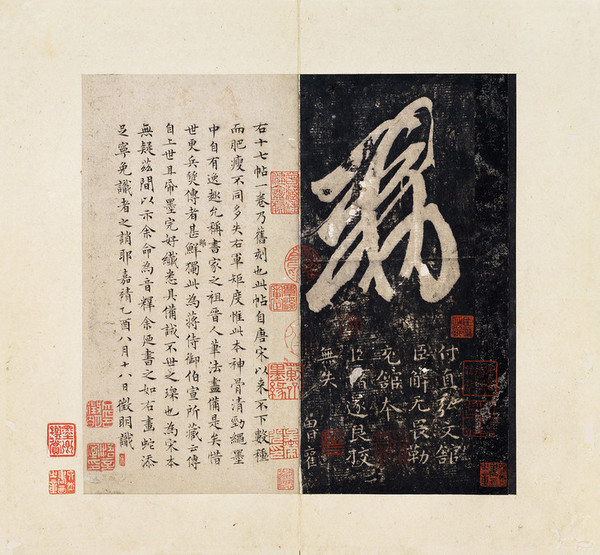 敕
付直弘文館
臣解无畏勒
充館本
臣褚遂良挍
無失
右十七帖一卷乃舊刻也此帖自唐宋以來不下數種
而肥瘦不同多失右軍矩度惟此本神骨清勁繩墨
中自有逸趣允稱書家之祖晉人筆法盡備是矣惜
世更兵燹傳者甚鮮獨此為蔣侍御伯宣所藏云傳
自上世耳帋墨完好纖悉具備誠不世之璨也為宋本
無疑茲間以示余命為音釋余迺書之如右畫蛇添
足寧免識者之誚耶嘉靖乙酉八月十八日徵明識